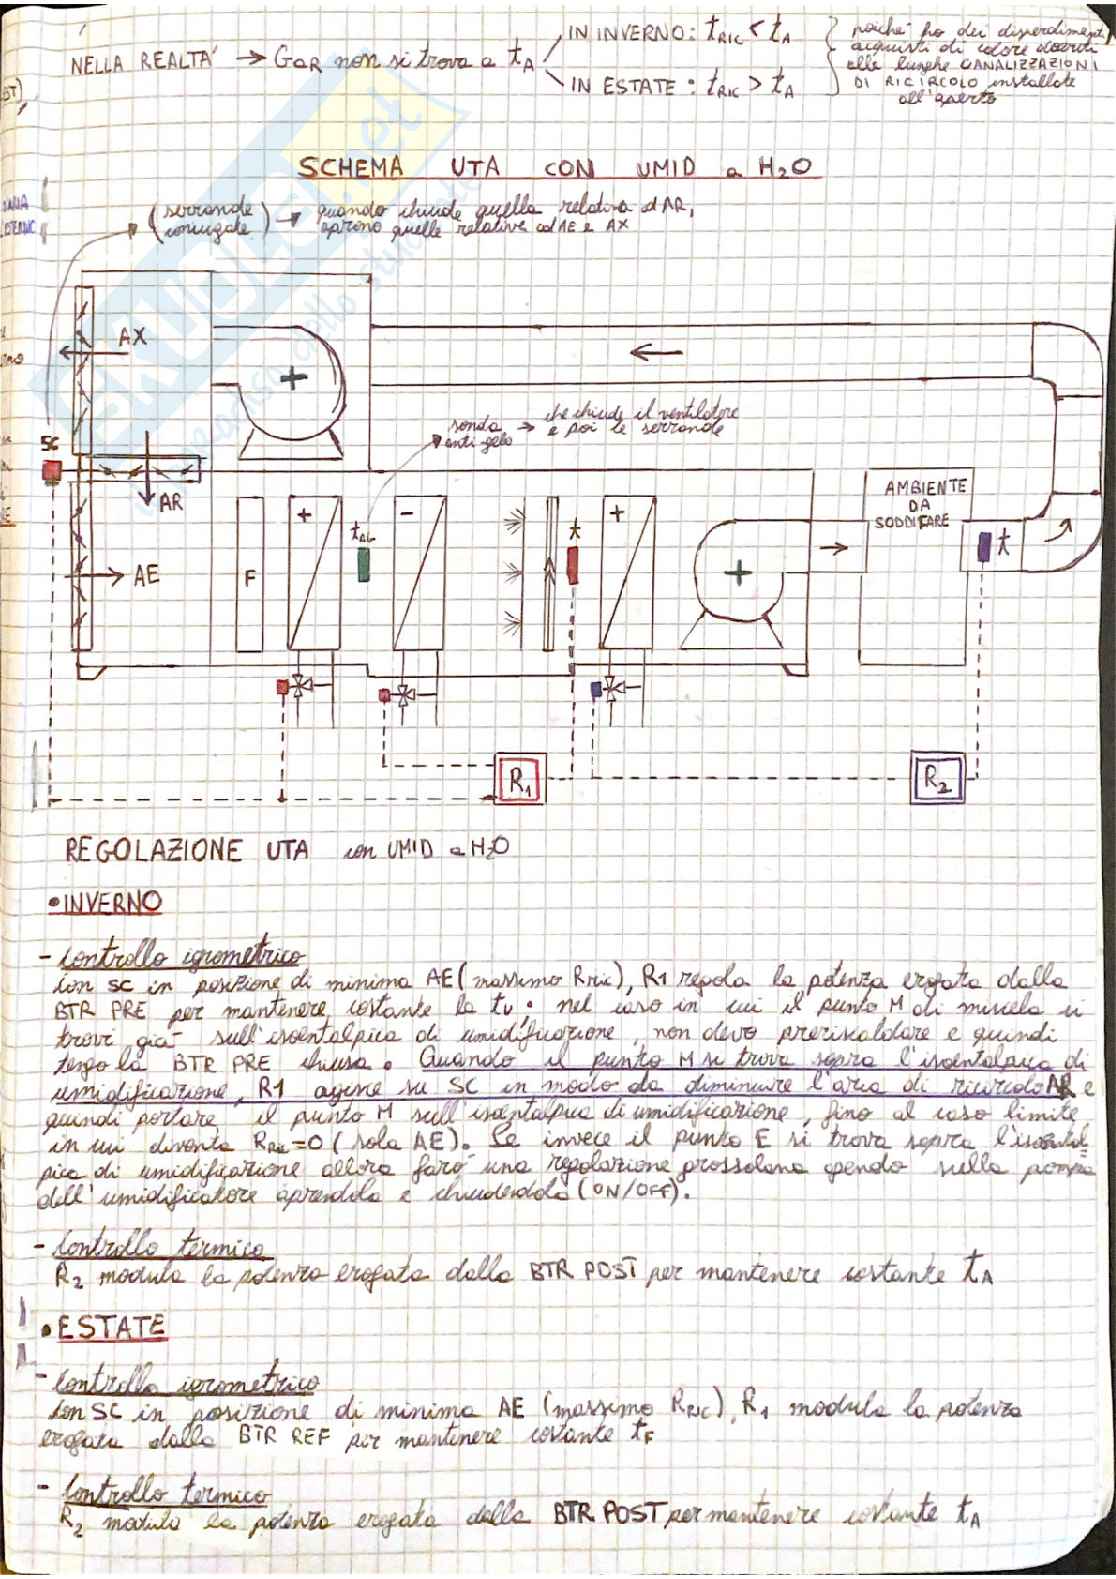 IN INVERNO: tRIC < tA
NELLA REALTA' → GaR non si trova a tA
IN ESTATE: tRIC > tA
poiché ho dei disperdimenti
acquisti di calore dovuti
alle lunghe CANALIZZAZIONI
DI RICIRCOLO installate
all'aperto
BT),
SCHEMA UTA CON UMID a H2O
(serrande
coniugate) → quando chiude quella relativa ad AR,
aprono quelle relative ad AE e AX
AX
sonda
antigelo → che chiude il ventilatore
e poi le serrande
SC
AR
AE
F
+
-
t
+
+
+
AMBIENTE
DA
SODDIFARE
t
R1
R2
REGOLAZIONE UTA con UMID a H2O
• INVERNO
- Controllo igrometrico
Con SC in posizione di minima AE (massimo RRIC), R1 regola la potenza erogata dalla
BTR PRE per mantenere costante la tU; nel caso in cui il punto M di miscela si
trovi già sull'isoentalpica di umidificazione, non devo preriscaldare e quindi
tengo la BTR PRE chiusa. Quando il punto M si trova sopra l'isoentalpica di
umidificazione, R1 agisce su SC in modo da diminuire l'aria di ricircolo AR e
quindi portare il punto M sull'isoentalpica di umidificazione, fino al caso limite
in cui diventa RRIC=0 (sola AE). Se invece il punto E si trova sopra l'isoental-
pica di umidificazione allora farò una regolazione grossolana agendo sulla pompa
dell'umidificatore aprendola e chiudendola (ON/OFF).
- Controllo termico
R2 modula la potenza erogata dalla BTR POST per mantenere costante tA
• ESTATE
- Controllo igrometrico
Con SC in posizione di minima AE (massimo RRIC), R1 modula la potenza
erogata dalla BTR REF per mantenere costante tF
- Controllo termico
R2 modula la potenza erogata dalla BTR POST per mantenere costante tA